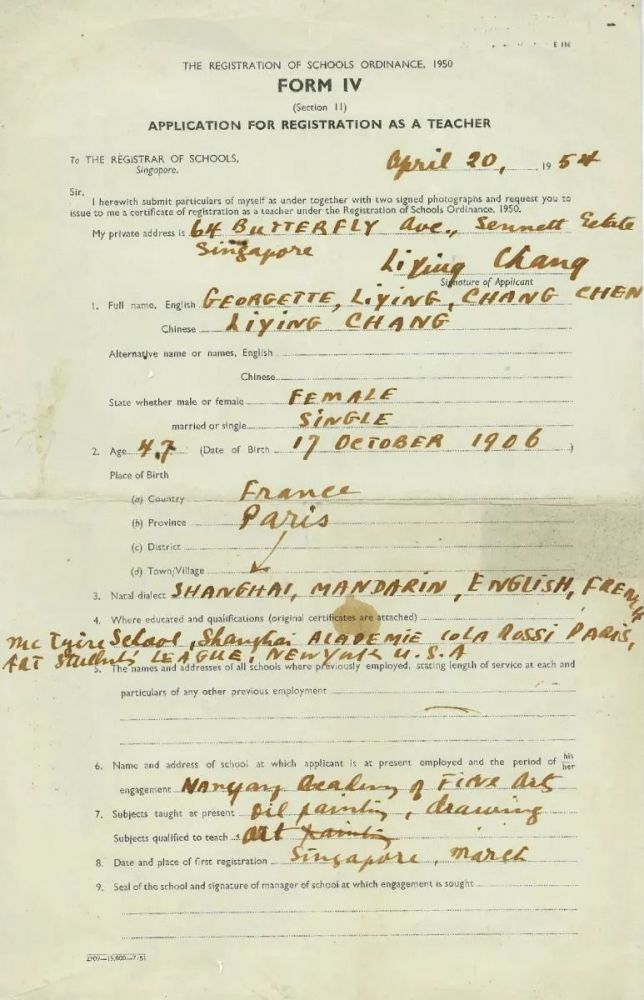 E 136
THE REGISTRATION OF SCHOOLS ORDINANCE, 1950
FORM IV
(Section 11)
APPLICATION FOR REGISTRATION AS A TEACHER
To THE REGISTRAR OF SCHOOLS,
Singapore.
April 20, 1954
Sir,
I herewith submit particulars of myself as under together with two signed photographs and request you to
issue to me a certificate of registration as a teacher under the Registration of Schools Ordinance, 1950.
My private address is 64 BUTTERFLY Ave., Sennett Estate
Singapore
Liying Chang
Signature of Applicant
1. Full name, English GEORGETTE, LIYING, CHANG CHEN
Chinese LIYING CHANG
Alternative name or names, English
Chinese
State whether male or female FEMALE
married or single SINGLE
2. Age 47 (Date of Birth 17 OCTOBER 1906 )
Place of Birth
(a) Country France
(b) Province Paris
(c) District
(d) Town/Village
3. Natal dialect SHANGHAI, MANDARIN, ENGLISH, FRENCH
4. Where educated and qualifications (original certificates are attached)
Mc Tyire School, Shanghai ACADEMIE COLA ROSSI PARIS,
ART Students LEAGUE, NEW York U.S.A
5. The names and addresses of all schools where previously employed, stating length of service at each and
particulars of any other previous employment
6. Name and address of school at which applicant is at present employed and the period of his
her
engagement Nanyang Academy of Fine Arts
7. Subjects taught at present oil painting, drawing
Subjects qualified to teach art painting
8. Date and place of first registration Singapore, March
9. Seal of the school and signature of manager of school at which engagement is sought